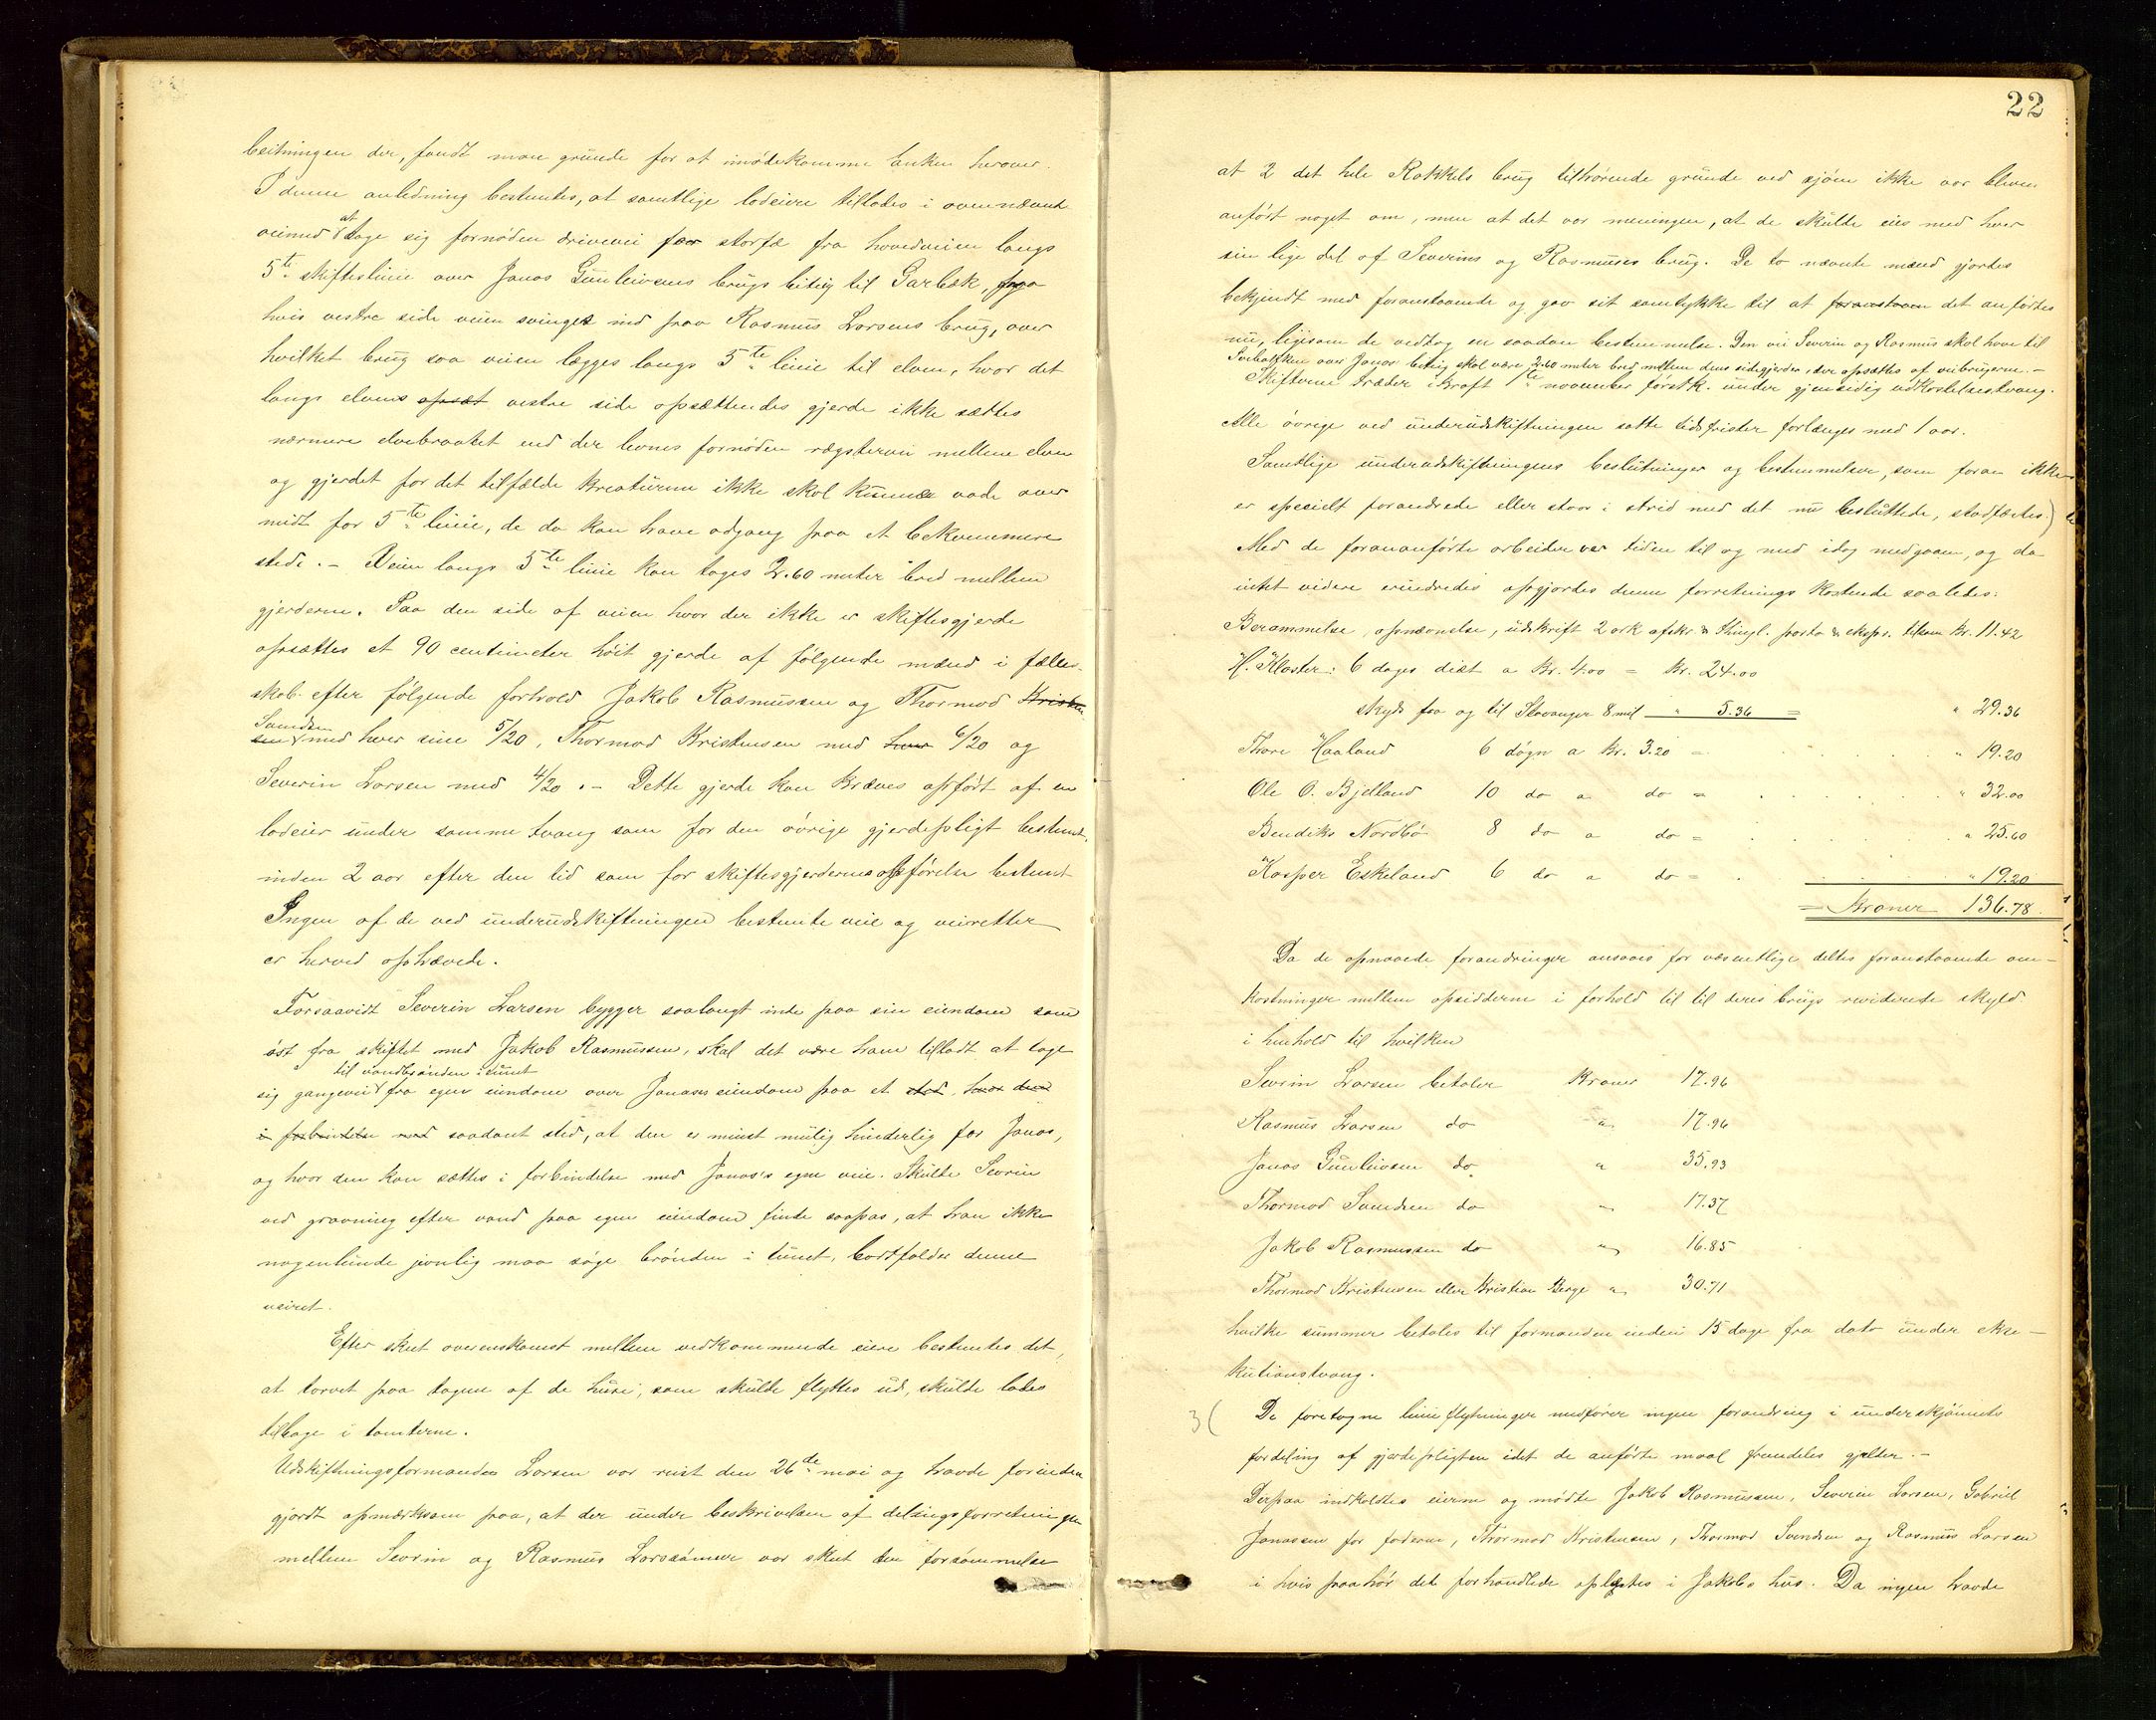 beitningen der, fandt man grunde for at imødekomme anken herover.
I denne anledning bestemtes, at samtlige lodeiere tillades i ovennævnte
veimed at tage sig fornøden drivevei for storfæ fra hovedveien langs
5te skifteslinie over Jonas Gunleivsens brugs beitig til Garbæk, paa
hvis vestre side veien svinges ind paa Rasmus Larsens brug, over
hvilket brug saa veien lægges langs 5te linie til elven, hvor det
langs elvens opsæt vestre side opsættendes gjerde ikke sættes
nærmere elvebraatet end der levnes fornøden rægstervei mellem elven
og gjerdet for det tilfælde kreaturerne ikke skal kunne vade over
midt for 5te linie, de da kan have adgang paa et bekvemmere
sted. – Veien langs 5te linie kan tages 2.60 meter bred mellem
gjerderne. Paa den side af veien hvor der ikke er skiftesgjerde
opsættes et 90 centimeter høit gjerde af følgende mænd i fælles-
skab efter følgende forhold Jakob Rasmussen og Thormod Kristen
sen Svendsen med hver sine 5/20, Thormod Kristensen med hver 6/20 og
Severin Larsen med 4/20. – Dette gjerde kan kræves opført af en
lodeier under samme tvang som for den øvrige gjerdepligt bestemt,
inden 2 aar efter den tid som for skiftesgjerdernes opførelse bestemt
Ingen af de ved underudskiftningen bestemte veie og veiretter
er herved ophævede.
Forsaavidt Severin Larsen bygger saalangt inde paa sin eiendom som
øst fra skiftet med Jakob Rasmussen, skal det være ham tilladt at tage
til vandbrønden i tunet
sig gangvei fra egen eiendom over Jonases eiendom paa et sted, hvor den
i forbindelse med saadant sted, at den er minst mulig hinderlig for Jonas,
og hvor den kan sættes i forbindelse med Jonas's egen veie. Skulde Sevrin
ved gravning efter vand paa egen eiendom finde saapas, at han ikke
nogenlunde jevnlig maa søge brønden i tunet, bortfalder denne
veiret.
Efter skeet overenskomst mellem vedkommende eiere bestemtes det,
at torvet paa tagene af de huse, som skulde flyttes ud, skulde lades
tilbage i tomterne.
Udskiftningsformanden Larsen var reist den 26de mai og havde forinden
gjort opmærksom paa, at der under beskrivelsen af delingsforretningen
mellem Sevrin og Rasmus Larssønner var skeet den forsømmelse
22
at 2 det hele Rakkels brug tilhørende grunde ved sjøen ikke var bleven
anført noget om, men at det var meningen, at de skulde eies med hver
sin lige del af Severins og Rasmuses brug. De to nævnte mænd gjordes
bekjendt med foranstaaende og gav sit samtykke til at foranstaaen det anførtes
nu, ligesom de vedtog en saadan bestemmelse. Den vei Severin og Rasmus skal have til
over Jonas beitig skal være 2.60 meter bred mellem dens sidegjerder, der opsættes af veibrugerne. –
Skifterne træder i kraft 1te november førstk. under gjensidig udkastelsestvang.
Alle øvrige ved underudskiftningen satte tidsfrister forlænges med 1 aar.
Samtlige underudskiftningens beslutninger og bestemmelser, som foran ikke
er specielt forandrede eller staar i strid med det nu besluttede, stadfæstes.)
Med de forananførte arbeider var tiden til og med idag medgaaen, og da
intet videre erindredes opgjordes denne forretnings kostende saaledes:
Berammelse, opnævnelse, udskrift 2 ark afskr. & thingl. porto & ekspr. tilsam Kr. 11.42
H. Kloster: 6 dages diæt a Kr. 4.00 = Kr. 24.00
skyds fra og til Stavanger 8 mil " 5.36 = " 29.36
Thore Haaland 6 døgn a Kr. 3.20 = " 19.20
Ole O. Bjelland 10 do a do = " 32.00
Bendiks Nordbø 8 do a do = " 25.60
Kasper Eskeland 6 do a do = " 19.20
= Kroner 136.78.
Da de opnaaede forandringer ansaaes for væsentlige deltes foranstaaende om-
kostninger mellem opsidderne i forhold til til deres brugs reviderede skyld
i henhold til hvilken
Sevrin Larsen betaler Kroner 17.96
Rasmus Larsen do " 17.96
Jonas Gunleivsen do " 35.93
Thormod Svendsen do " 17.37
Jakob Rasmussen do " 16.85
Thormod Kristensen eller Kristian Berge " 30.71
hvilke summer betales til formanden inden 15 dage fra dato under ekse-
kutionstvang.
3( De foretagne linieflytninger medfører ingen forandring i underskjønnets
fordeling af gjerdepligten idet de anførte maal fremdeles gjælder. –
Derpaa indkaldtes eierne og mødte Jakob Rasmussen, Severin Larsen, Gabriel
Jonassen for faderen, Thormod Kristensen, Thormod Svendsen og Rasmus Larsen
i hvis paahør det forhandlede oplæstes i Jakobs hus. Da ingen havde